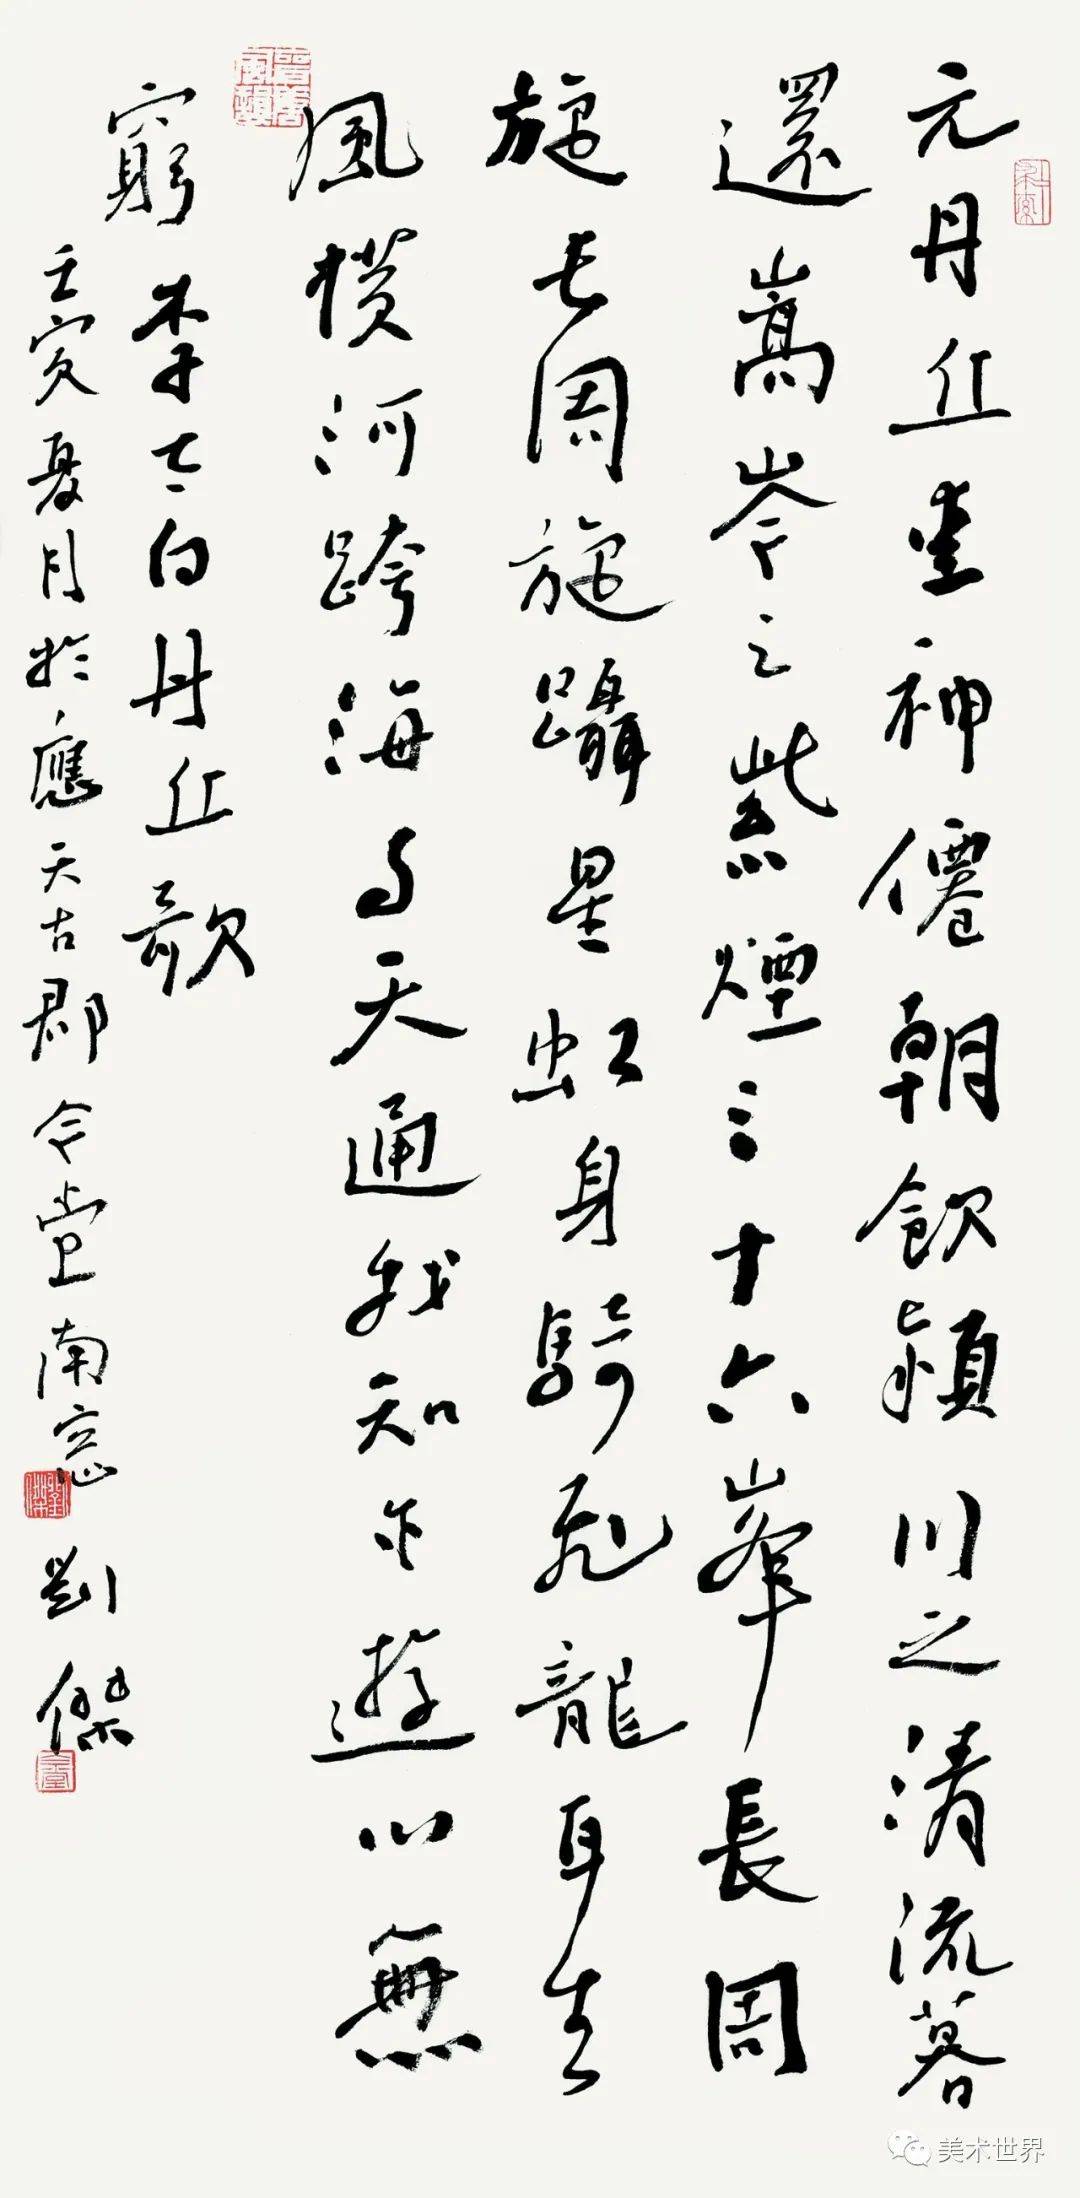 元丹丘愛神僊朝飲潁川之清流暮
還嵩岑之紫煙三十六峯長周
旋長周旋躡星虹身騎飛龍耳生
風橫河跨海与天通我知尔遊心無
窮李太白丹丘歌
壬寅夏月於應天古郡堂南窓劉傑
劉傑
美术世界